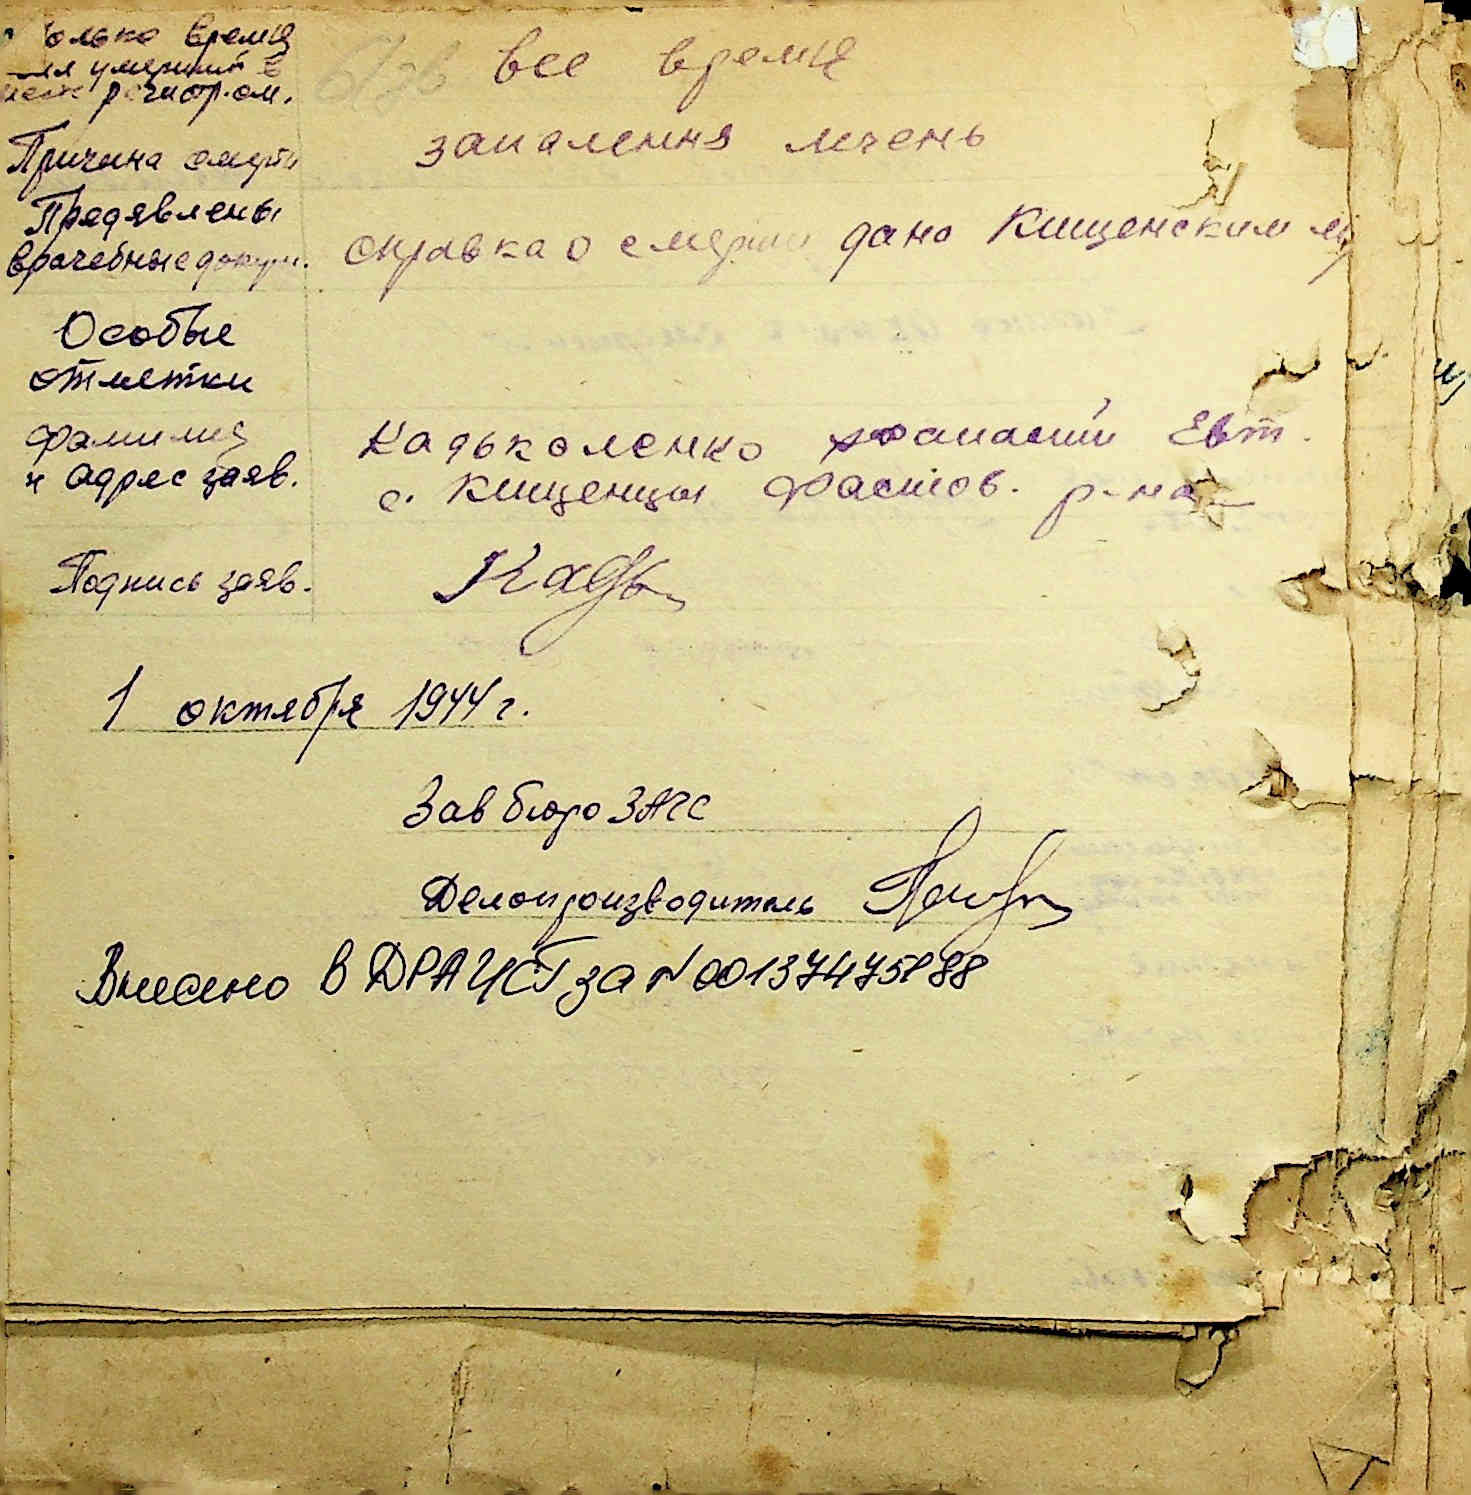 олько время все время
умерший в
регистр.ом.
Причина смерти запалення лчень
Предявлены
врачебные докум. справка о смерти дано Кищенским
Особые
отметки
фамилия Кадьколенко Фанасий Евт.
и адрес заяв. с. Кищенцы Фастов. р-на
Подпись заяв. Кадь
1 октября 1944 г.
Зав бюро ЗАГС
Делопроизводитель
Внесено в ДРАЦСГ за N 00137475888